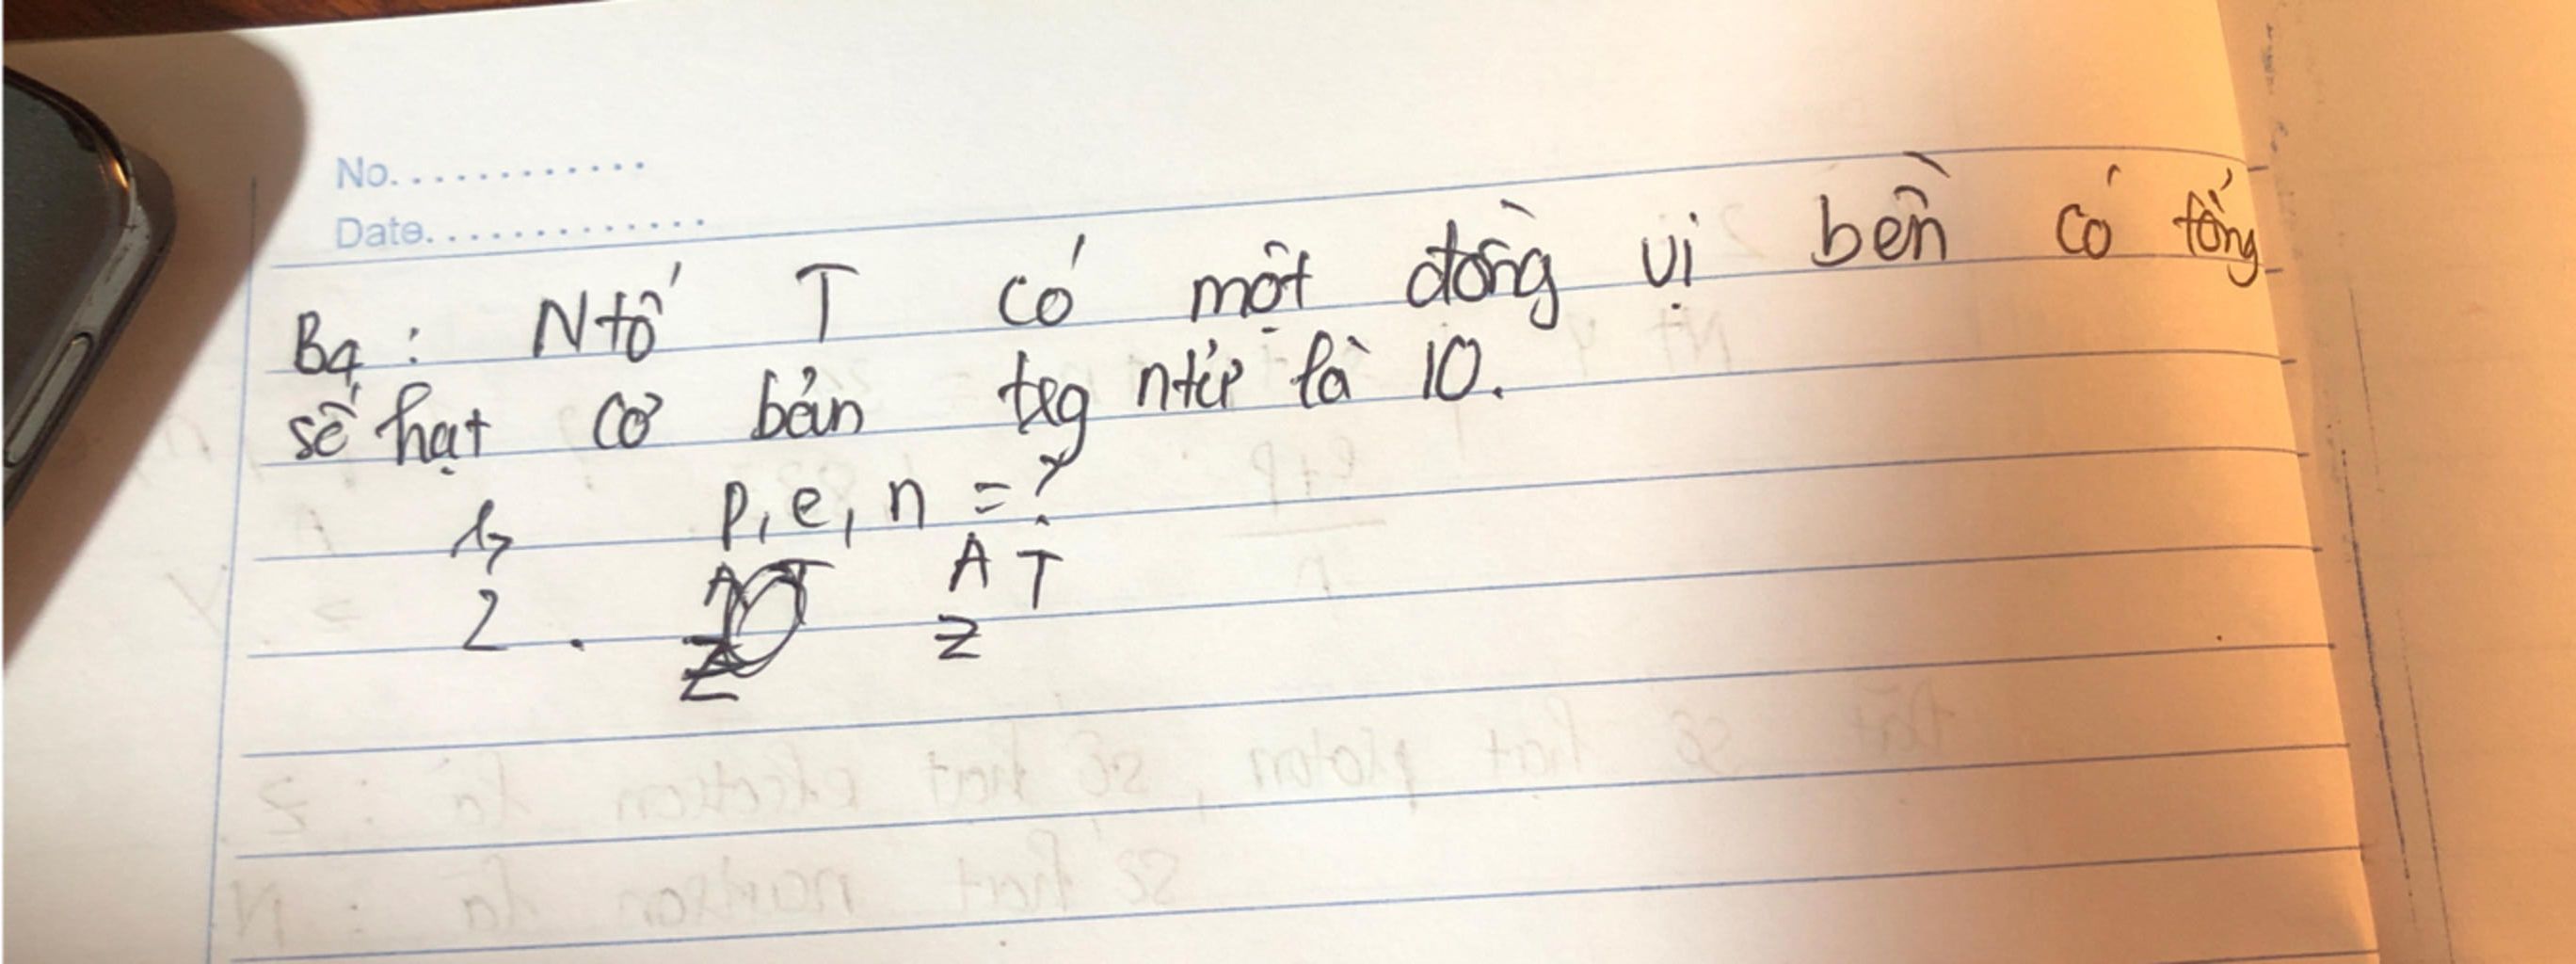 No.............
Date..............
B4: Ntố T có một đồng vị bền có tổng
số hạt cơ bản trg ntử là 10.
1, p, e, n = ?
2. A T
Z